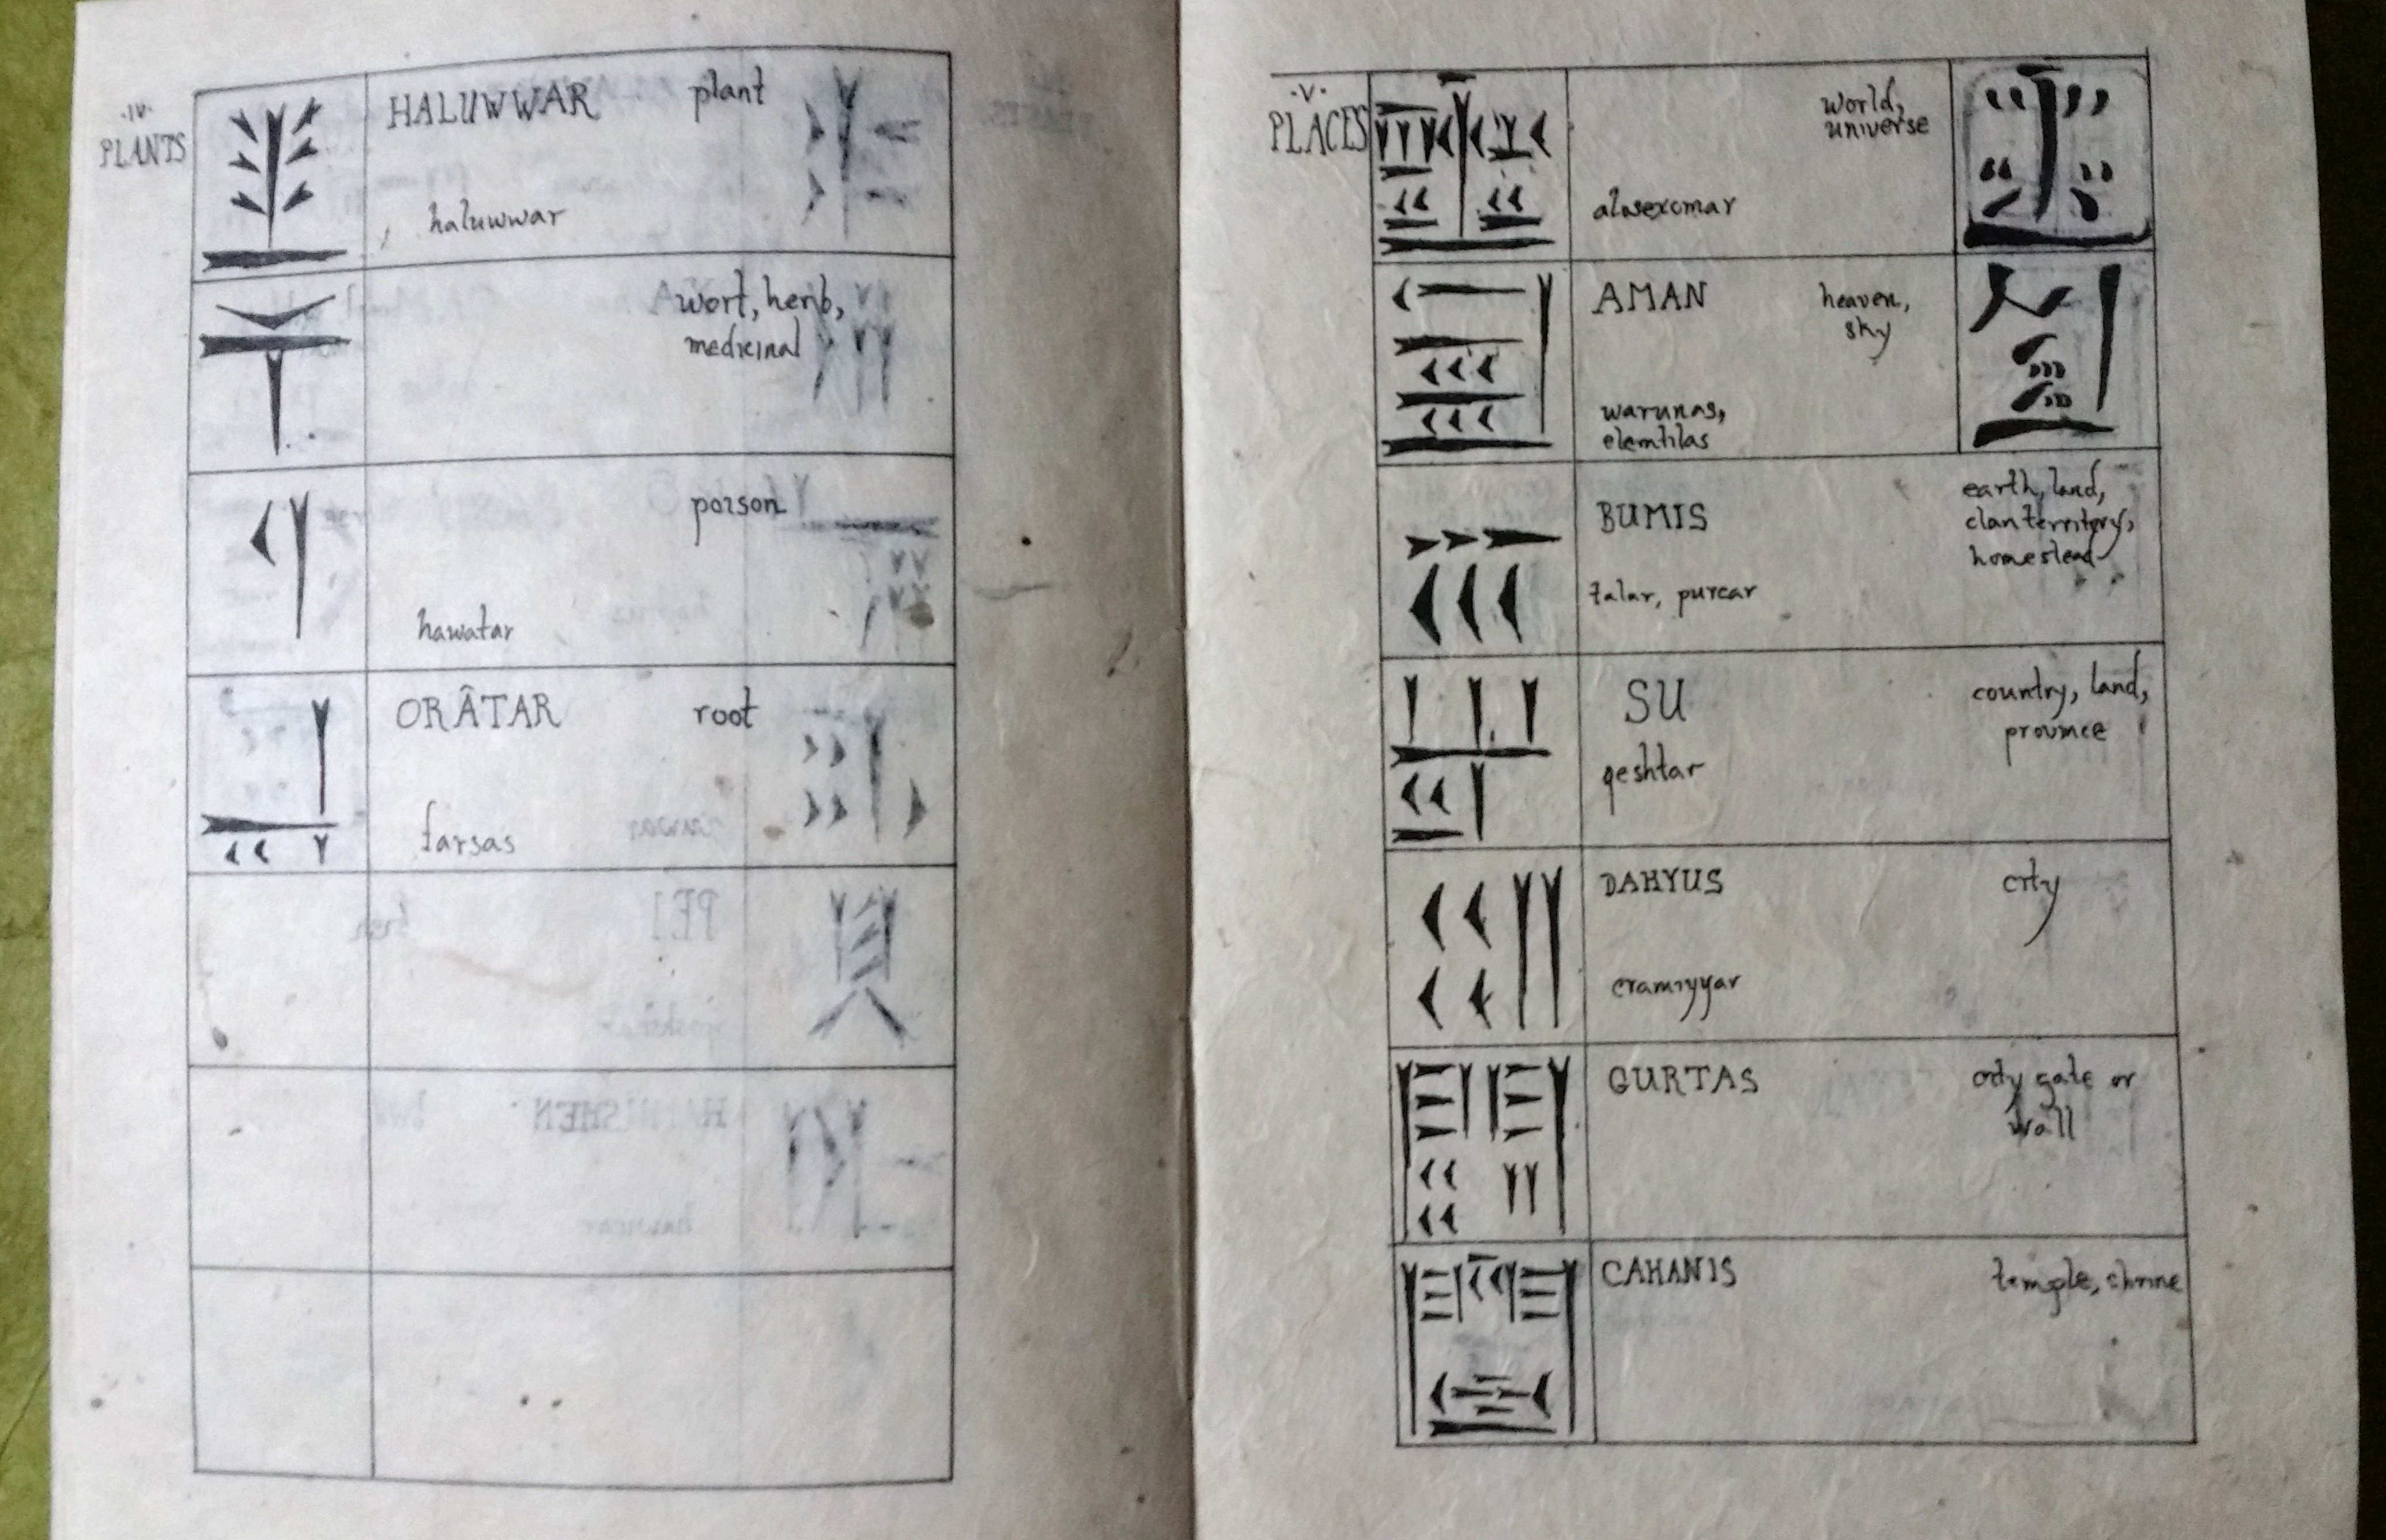 ·IV·
PLANTS
HALUWWAR plant
haluwwar
wort, herb,
medicinal
poison
hawatar
ORÂTAR root
farsas
·V·
PLACES
world,
universe
alasexomar
AMAN heaven,
sky
warunas,
elemtilas
BUMIS earth, land,
clan territory,
homestead
talar, purcar
SU country, land,
province
qeshtar
DAHYUS city
cramiyyar
GURTAS city gate or
wall
CAHANIS temple, shrine